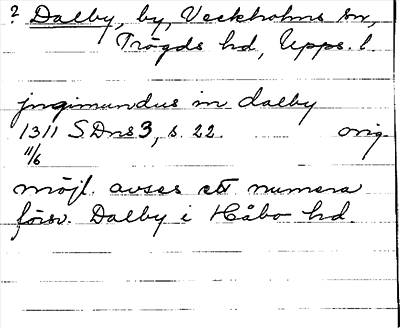 ? Dalby, by, Veckholms sn,
Trögds hd, Upps. l.
jngimundus in dalby
1311 SDns 3, s. 22. orig.
11/6
möjl. avses ett numera
försv. Dalby i Håbo hd.